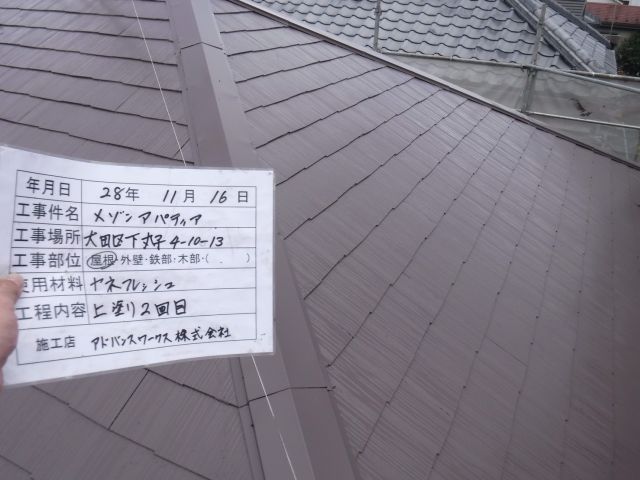 年月日 28年 11月 16日
工事件名 メゾンアパティア
工事場所 大田区下丸子4-10-13
工事部位 屋根・外壁・鉄部・木部・( )
使用材料 ヤネフレッシュ
工程内容 上塗り2回目
施工店 アドバンスワークス株式会社